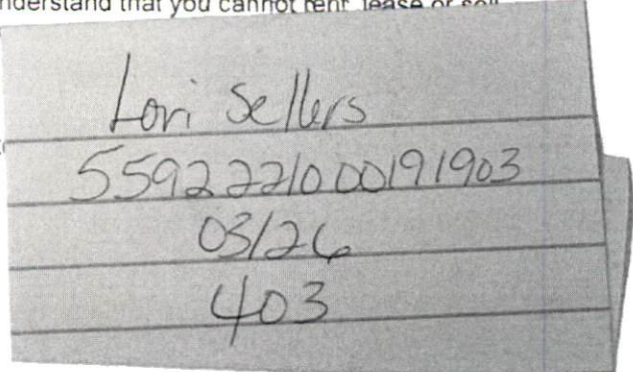 nderstand that you cannot rent, lease or sell
Lori Sellers
5592221000191903
03/26
403